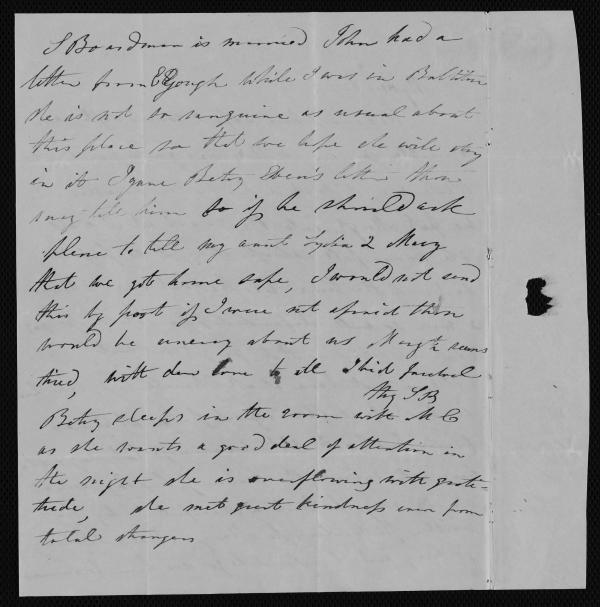 S Boardman is married John had a
letter from E Gough while I was in Baltim
she is not so sanguine as usual about
this place so that we hope she will stay
in it I gave Betsy Eben's letter thou
may tell him so if he should ask
please to tell my aunt Lydia & Mary
that we got home safe, I would not send
this by post if I were not afraid thou
would be uneasy about us Margt seems
tired, with dear love to all I bid farewell
thy S B
Betsy sleeps in the room with M C
as she wants a good deal of attention in
the night she is overflowing with grati-
tude, she met great kindness even from
total strangers